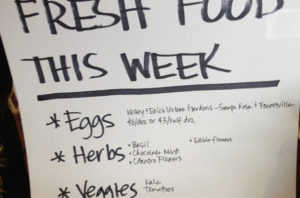 FRESH FOOD
THIS WEEK
* Eggs
Kelley & Erick Urban Gardens - Santa Rosa & Forestville
$6/doz or $3/half doz
* Herbs
• Basil
• Chocolate Mint
• Cilantro Flowers
• Edible flowers
* Veggies
Kale
Tomatoes